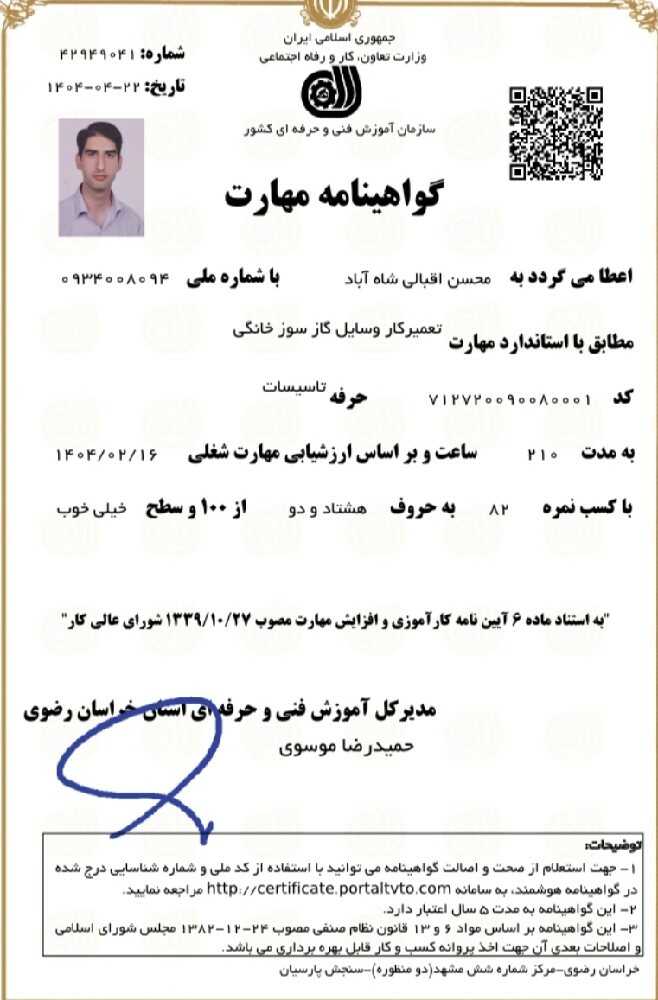 جمهوری اسلامی ایران
وزارت تعاون، کار و رفاه اجتماعی
شماره: ۴۲۹۴۹۰۴۱
تاریخ: ۱۴۰۴-۰۴-۲۲
سازمان آموزش فنی و حرفه ای کشور
گواهینامه مهارت
اعطا می گردد به محسن اقبالی شاه آباد با شماره ملی ۰۹۳۴۰۰۸۰۹۴
مطابق با استاندارد مهارت تعمیرکار وسایل گاز سوز خانگی
کد ۷۱۲۷۲۰۰۹۰۰۸۰۰۰۱ حرفه تاسیسات
به مدت ۲۱۰ ساعت و بر اساس ارزشیابی مهارت شغلی ۱۴۰۴/۰۲/۱۶
با کسب نمره ۸۲ به حروف هشتاد و دو از ۱۰۰ و سطح خیلی خوب
"به استناد ماده ۶ آیین نامه کارآموزی و افزایش مهارت مصوب ۱۳۳۹/۱۰/۲۷ شورای عالی کار"
مدیرکل آموزش فنی و حرفه ای استان خراسان رضوی
حمیدرضا موسوی
توضیحات:
۱- جهت استعلام از صحت و اصالت گواهینامه می توانید با استفاده از کد ملی و شماره شناسایی درج شده
در گواهینامه هوشمند، به سامانه http://certificate.portaltvto.com مراجعه نمایید.
۲- این گواهینامه به مدت ۵ سال اعتبار دارد.
۳- این گواهینامه بر اساس مواد ۶ و ۱۳ قانون نظام صنفی مصوب ۲۴-۱۲-۱۳۸۲ مجلس شورای اسلامی
و اصلاحات بعدی آن جهت اخذ پروانه کسب و کار قابل بهره برداری می باشد.
خراسان رضوی-مرکز شماره شش مشهد(دو منظوره)-سنجش پارسیان